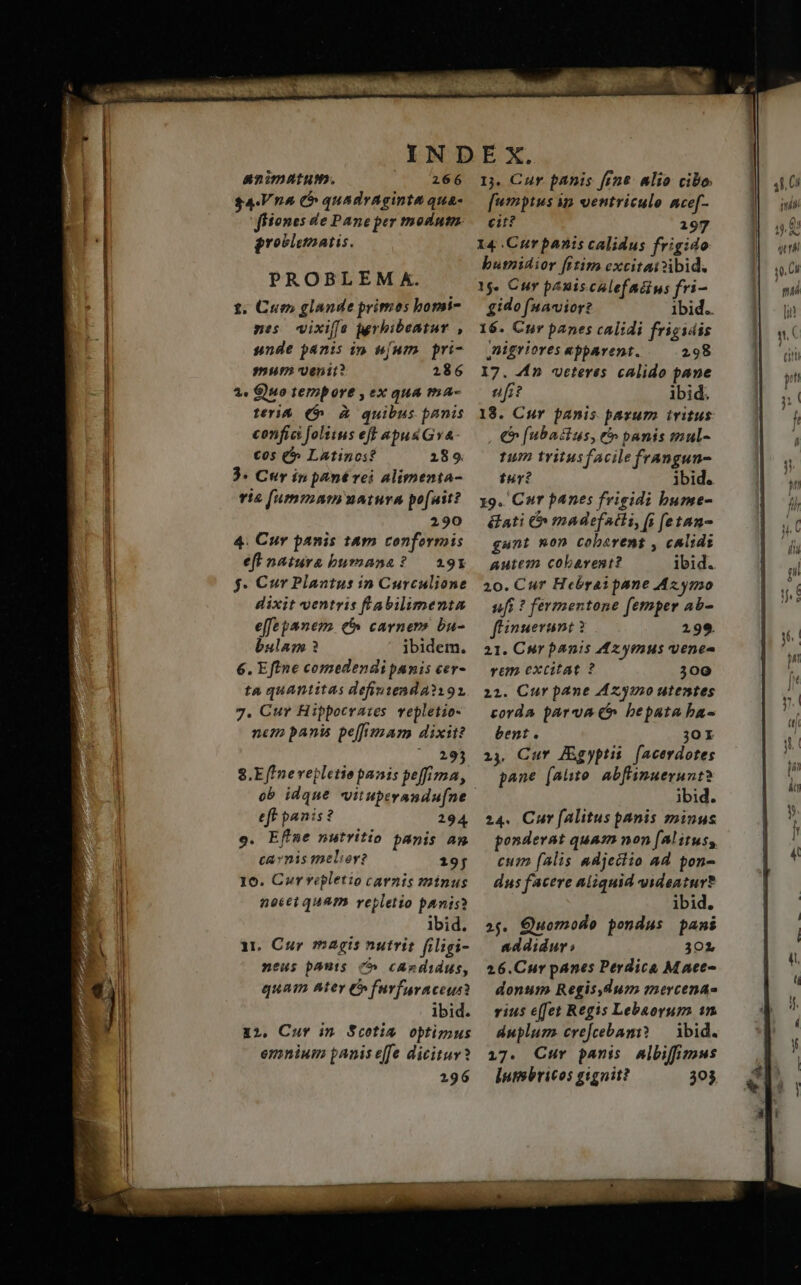 INDEX.
animatum. 266
54. Vna & quadraginta quæ-
ſtiones de Pane per modum
problematis.
PROBLEMA.
1. Cum glande primos homi-
nes vixiſſe perhibeantur ,
unde panis in uſum pri-
mum venit? 286
2. Quo tempore , ex qua ma-
teria & à quibus panis
confici ſolitus eſt apud Græ-
cos & Latinos? 289
3. Cur in pane rei alimenta-
riæ ſummam natura poſuit?
290
4. Cur panis tam conformis
eſt naturæ humanæ? 291
5. Cur Plautus in Curculione
dixit ventris ſtabilimenta
eſſe panem & carnem bu-
bulam ? ibidem.
6. Eſtne comedendi panis cer-
ta quantitas definienda? 292
7. Cur Hippocrates repletio-
nem panis peſſimam dixit?
293
8. Eſtne repletio panis peſſima,
ob idque vituperanduſne
eſt panis? 294
9. Eſtne nutritio panis an
carnis melior? 295
10. Cur repletio carnis minus
nocet quam repletio panis?
ibid.
11. Cur magis nutrit ſiligi-
neus panis & candidus,
quam ater & furfuraceus?
ibid.
12. Cur in Scotia optimus
omnium panis eſſe dicitur?
296
13. Cur panis ſine alio cibo
ſumptus in ventriculo aceſ-
cit? 297
14. Cur panis calidus frigido
humidior ſitim excitat? ibid.
15. Cur panis calefactus fri-
gido ſuavior? ibid.
16. Cur panes calidi frigidis
nigriores apparent. 298
17. An veteres calido pane
uſi? ibid.
18. Cur panis parum tritus
& ſubactus, & panis mul-
tum tritus facile frangun-
tur? ibid.
19. Cur panes frigidi hume-
ctati & madefacti, ſi ſetan-
gunt non cohærent , calidi
autem cohærent? ibid.
20. Cur Hebræi pane Azymo
uſi ? fermentone ſemper ab-
ſtinuerunt ? 299.
21. Cur panis Azymus vene-
rem excitat ? 300
22. Cur pane Azymo utentes
corda parva & hepata ha-
bent. 301
23. Cur Ægyptii ſacerdotes
pane ſalito abſtinuerunt?
ibid.
24. Cur ſalitus panis minus
ponderat quam non ſalitus,
cum ſalis adjectio ad pon-
dus facere aliquid videatur?
ibid.
25. Quomodo pondus pani
addidur? 302
26. Cur panes Perdica Mace-
donum Regis, dum mercena-
rius eſſet Regis Lebæorum in
duplum creſcebant? ibid.
27. Cur panis albiſſimus
lumbricos gignit? 303